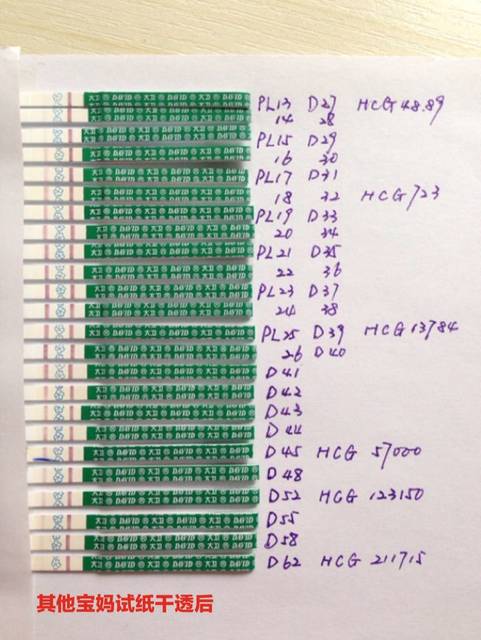 PL13 D27 HCG 48.89
14 28
PL15 D29
16 30
PL17 D31
18 32 HCG 723
PL19 D33
20 34
PL21 D35
22 36
PL23 D37
24 38
PL25 D39 HCG 13784
26 D40
D41
D42
D43
D44
D45 HCG 57000
D48
D52 HCG 123150
D55
D58
D62 HCG 211715
其他宝妈试纸干透后